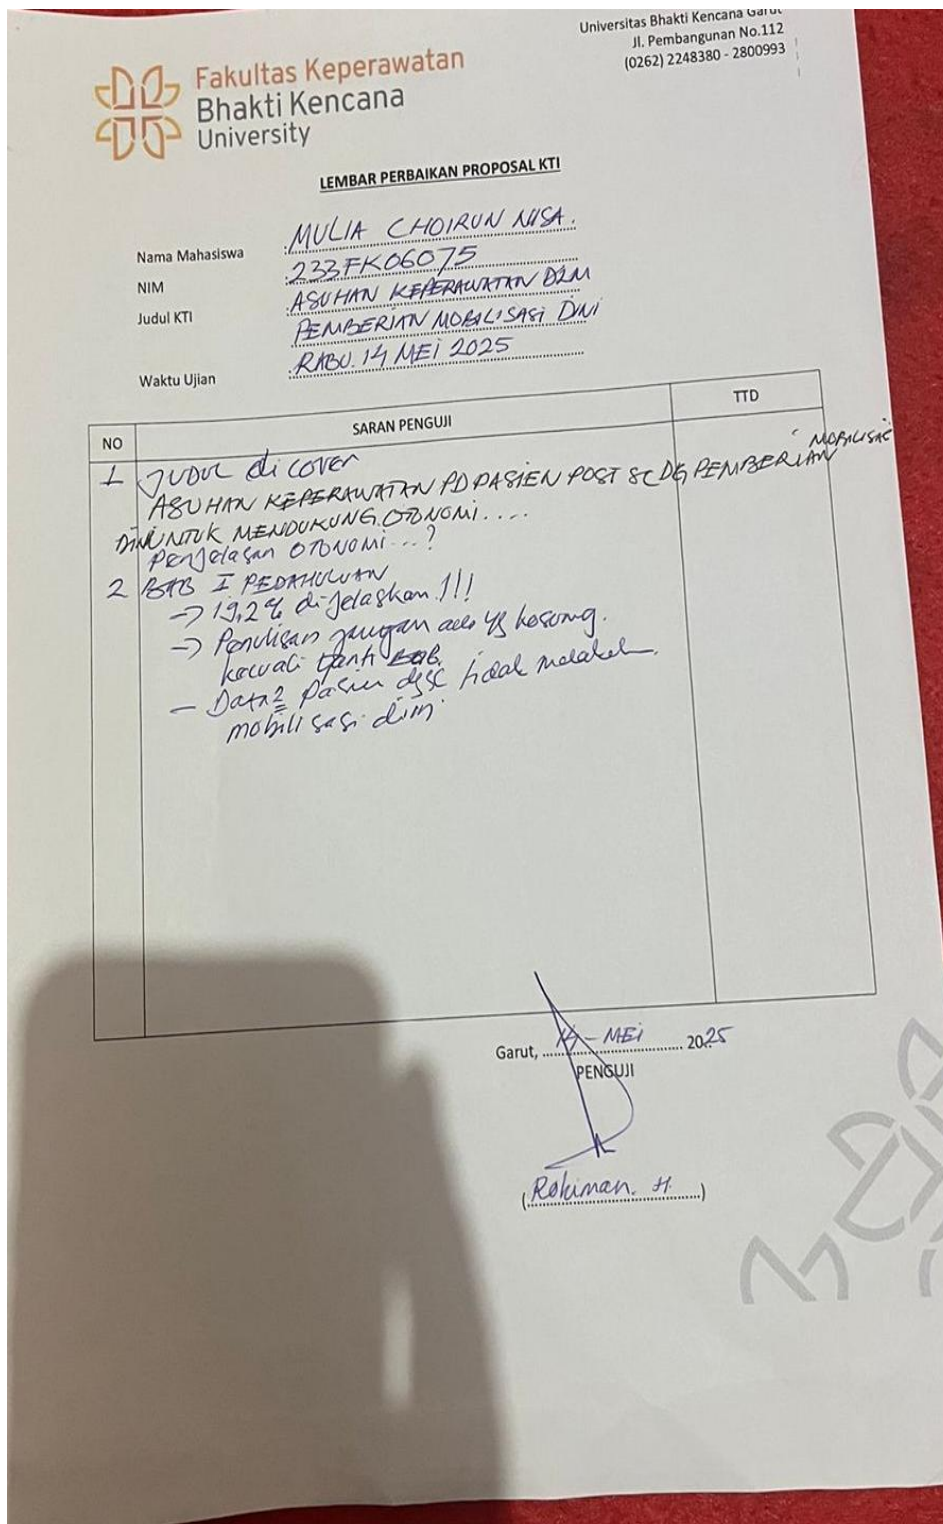 Universitas Bhakti Kencana Garut
Jl. Pembangunan No.112
(0262) 2248380 - 2800993
Fakultas Keperawatan
Bhakti Kencana
University
LEMBAR PERBAIKAN PROPOSAL KTI
Nama Mahasiswa : MULIA CHOIRUN NISA.
NIM : 233FK06075
Judul KTI : ASUHAN KEPERAWATAN DLM
PEMBERIAN MOBILISASI DINI
Waktu Ujian : RABU. 14 MEI 2025
NO SARAN PENGUJI TTD
1 JUDUL di cover
ASUHAN KEPERAWATAN PD PASIEN POST SC DG PEMBERIAN MOBILISASI
DINI UNTUK MENDUKUNG OTONOMI....
Penjelasan OTONOMI...?
2 BAB I PEDAHULUAN
→ 19,2% di jelaskan !!!
→ Penulisan jangan ada yg kosong.
kecuali ganti BAB.
- Data2 pasien dgsc tidak melakukan
mobilisasi dini
Garut, 14 - MEI 2025
PENGUJI
(Rohiman. H.)